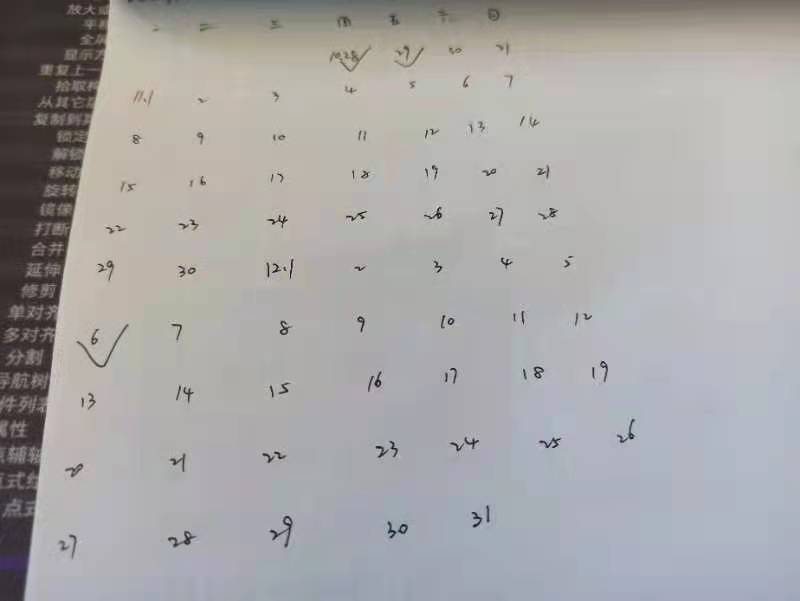 放大或
平移
全屏
显示方
重复上一
拾取构
从其它
复制到
锁定
解锁
移动
旋转
镜像
打断
合并
延伸
修剪
单对齐
多对齐
分割
导航树
件列表
属性
点辅轴
点式
一 二 三 四 五 六 日
10.28 29 30 31
11.1 2 3 4 5 6 7
8 9 10 11 12 13 14
15 16 17 18 19 20 21
22 23 24 25 26 27 28
29 30 12.1 2 3 4 5
6 7 8 9 10 11 12
13 14 15 16 17 18 19
20 21 22 23 24 25 26
27 28 29 30 31